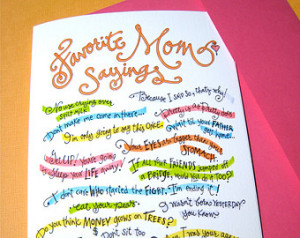 Favorite Mom
Sayings
No use crying over
spilt milk.
Because I said so, that's why!
Don't make me come in there
Pretty is as Pretty does
Wait till your FATHER
gets home
I'm only going to say this ONCE
Your EYES are bigger than your
STOMACH.
Get UP! You're going
to sleep your LIFE away!
If all your FRIENDS jumped off
a BRIDGE, would you do it TOO?
I don't care WHO started the FIGHT. I'm ending it!
eat your peas.
I wasn't born YESTERDAY
you know
Do you think MONEY grows on TREES?
Don't sit too
your age